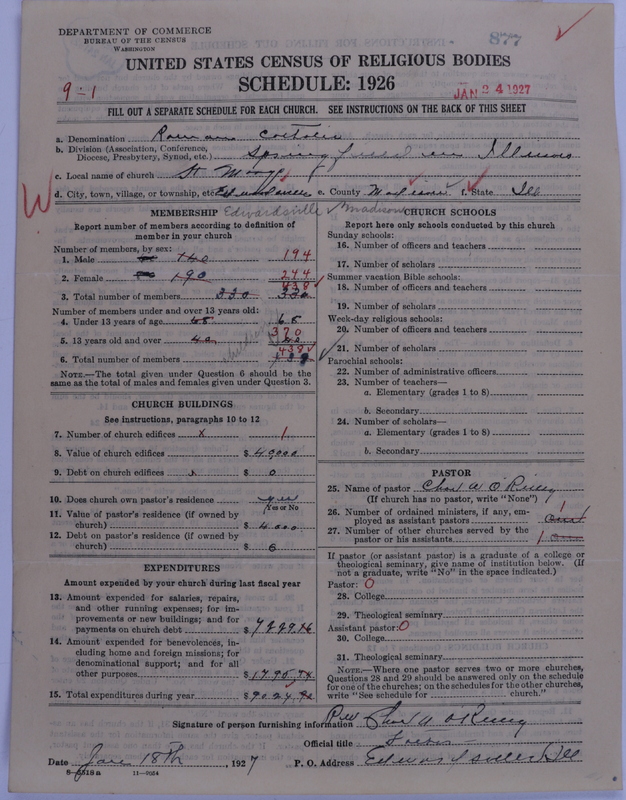 DEPARTMENT OF COMMERCE
BUREAU OF THE CENSUS
WASHINGTON
877
UNITED STATES CENSUS OF RELIGIOUS BODIES
SCHEDULE: 1926
9-1
JAN 24 1927
FILL OUT A SEPARATE SCHEDULE FOR EACH CHURCH. SEE INSTRUCTIONS ON THE BACK OF THIS SHEET
a. Denomination Roman Catholic
b. Division (Association, Conference, Diocese, Presbytery, Synod, etc.) Springfield in Illinois
c. Local name of church St Marys
d. City, town, village, or township, etc. Edwardsville e. County Madison f. State Ill
W
Edwardsville Madison
MEMBERSHIP
Report number of members according to definition of
member in your church
Number of members, by sex:
1. Male 140 194
2. Female 190 244
438
3. Total number of members 330 330
Number of members under and over 13 years old:
4. Under 13 years of age 68 68
370
5. 13 years old and over
438
6. Total number of members
NOTE.—The total given under Question 6 should be the
same as the total of males and females given under Question 3.
CHURCH BUILDINGS
See instructions, paragraphs 10 to 12
7. Number of church edifices x 1
8. Value of church edifices $ 40,000
9. Debt on church edifices $ 0
10. Does church own pastor's residence yes
(Yes or No
11. Value of pastor's residence (if owned by
church) $ 4000
12. Debt on pastor's residence (if owned by
church) $ 0
EXPENDITURES
Amount expended by your church during last fiscal year
13. Amount expended for salaries, repairs,
and other running expenses; for im-
provements or new buildings; and for
payments on church debt $
14. Amount expended for benevolences, in-
cluding home and foreign missions; for
denominational support; and for all
other purposes $
15. Total expenditures during year $
CHURCH SCHOOLS
Report here only schools conducted by this church
Sunday schools:
16. Number of officers and teachers
17. Number of scholars
Summer vacation Bible schools:
18. Number of officers and teachers
19. Number of scholars
Week-day religious schools:
20. Number of officers and teachers
21. Number of scholars
Parochial schools:
22. Number of administrative officers
23. Number of teachers—
a. Elementary (grades 1 to 8)
b. Secondary
24. Number of scholars—
a. Elementary (grades 1 to 8)
b. Secondary
PASTOR
25. Name of pastor Chas W O'Reilly
(If church has no pastor, write "None")
26. Number of ordained ministers, if any, em-
ployed as assistant pastors 1
27. Number of other churches served by the
pastor or his assistants 1
If pastor (or assistant pastor) is a graduate of a college or
theological seminary, give name of institution below. (If
not a graduate, write "No" in the space indicated.)
Pastor: 0
28. College
29. Theological seminary
Assistant pastor: 0
30. College
31. Theological seminary
NOTE.—Where one pastor serves two or more churches,
Questions 28 and 29 should be answered only on the schedule
for one of the churches; on the schedules for the other churches,
write "See schedule for church."
Signature of person furnishing information Rev Chas W O'Reilly
Official title Pastor
Date Jan 18th, 1927 P. O. Address Edwardsville Ill
8-5518 a 11-9054